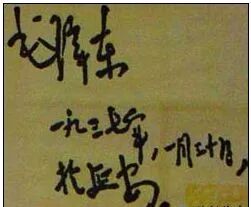 毛澤東
一九三七年,一月三十日,
於延安。